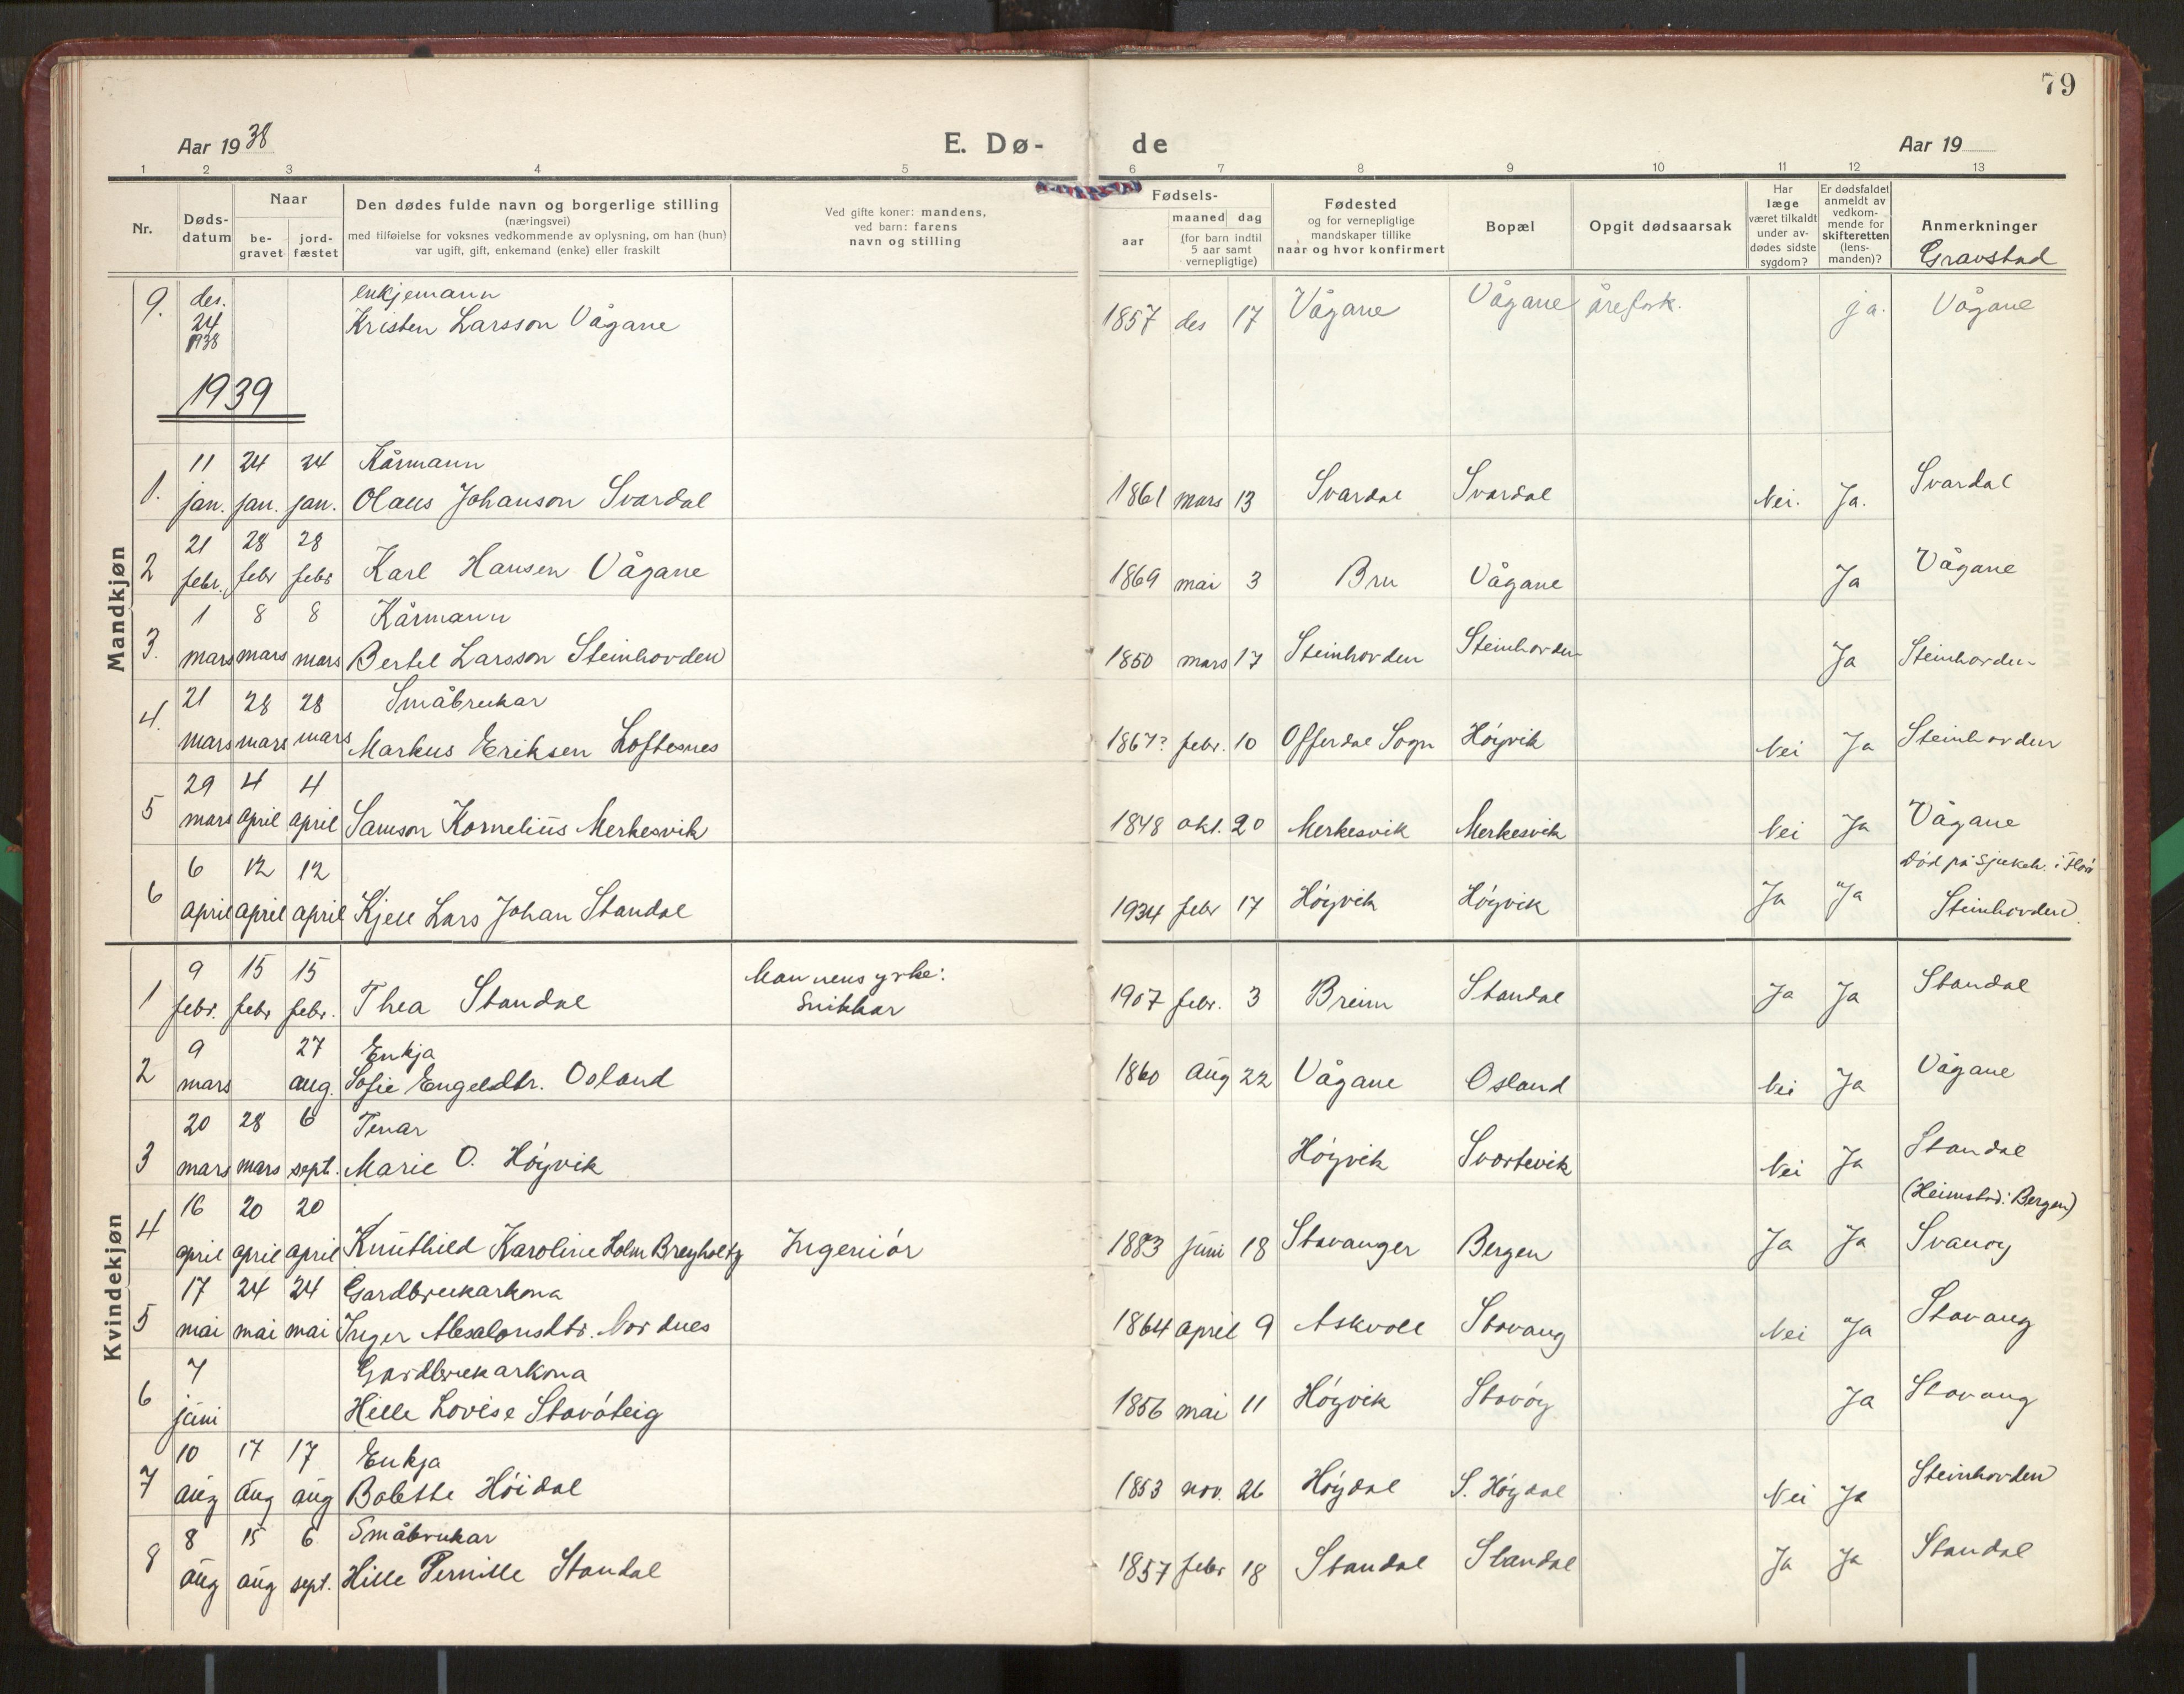 79
Aar 1938
E. Dø-
de
Aar 19
1 2 3 4 5 6 7 8 9 10 11 12 13
Nr.
Døds-
datum
Naar
be-
gravet
jord-
fæstet
Den dødes fulde navn og borgerlige stilling
(næringsvei)
med tilføielse for voksnes vedkommende av oplysning, om han (hun)
var ugift, gift, enkemand (enke) eller fraskilt
Ved gifte koner: mandens,
ved barn: farens
navn og stilling
Fødsels-
aar
maaned dag
(for barn indtil
5 aar samt
vernepligtige)
Fødested
og for vernepligtige
mandskaper tillike
naar og hvor konfirmert
Bopæl
Opgit dødsaarsak
Har
læge
været tilkaldt
under av-
dødes sidste
sygdom?
Er dødsfaldet
anmeldt av
vedkom-
mende for
skifteretten
(lens-
manden)?
Anmerkninger
Gravstad
Mandkjøn
9. des. enkjemann
24 Kristen Larsson Vågane 1857 des 17 Vågane Vågane årefork. ja. Vågane
1938
1939
11 24 24 Kårmann
1. jan. jan. jan. Olaus Johanson Svardal 1861 mars 13 Svardal Svardal Nei. Ja. Svardal
21 28 28
2 febr. febr febr Karl Hansen Vågane 1869 mai 3 Bru Vågane Ja Vågane
1 8 8 Kårmann
3. mars mars mars Bertel Larsson Steinhovden 1850 mars 17 Steinhovden Steinhovden Ja Steinhovden
21 28 28 Småbrukar
4. mars mars mars Markus Eriksen Loftesnes 1867? febr. 10 Offerdal Sogn Høgvik Nei Ja Steinhovden
29 4 4
5 mars april april Samson Kornelius Merkesvik 1848 okt. 20 Merkesvik Merkesvik Nei Ja Vågane
6 12 12 Død på sjukeh. i Florø
6 april april april Kjell Lars Johan Standal 1934 febr 17 Høgvik Høgvik Ja Ja Steinhovden.
Kvindekjøn
9 15 15 Mannens yrke:
1 febr. febr febr. Thea Standal Snikkar 1907 febr. 3 Breim Standal Ja Ja Standal
9 27 Enkja
2 mars aug. Sofie Engeldtr. Osland 1860 aug 22 Vågane Osland Nei Ja Vågane
20 28 6 Tenar
3 mars mars sept. Marie O. Høgvik Høgvik Svortevik Nei Ja Standal
16 20 20 (Heimstad: Bergen)
4 april april april Knuthild Karoline Holm Breyholtz Ingeniør 1883 juni 18 Stavanger Bergen Ja Ja Svanøy
17 24 24 Gardbrukarkona
5 mai mai mai Inger Absalonsdtr. Nordnes 1864 april 9 Askvoll Stavang Nei Ja Stavang
7 Gardbrukarkona
6 juni Hille Lovise Stavøteig 1856 mai 11 Høgvik Stavøy Ja Stavang
10 17 17 Enkja
7 aug aug aug Bolette Høidal 1853 nov. 26 Høydal S. Høydal Nei Ja Steinhovden
8 15 6 Småbrukar
8 aug aug sept. Hille Pernille Standal 1857 febr 18 Standal Standal Ja Ja Standal